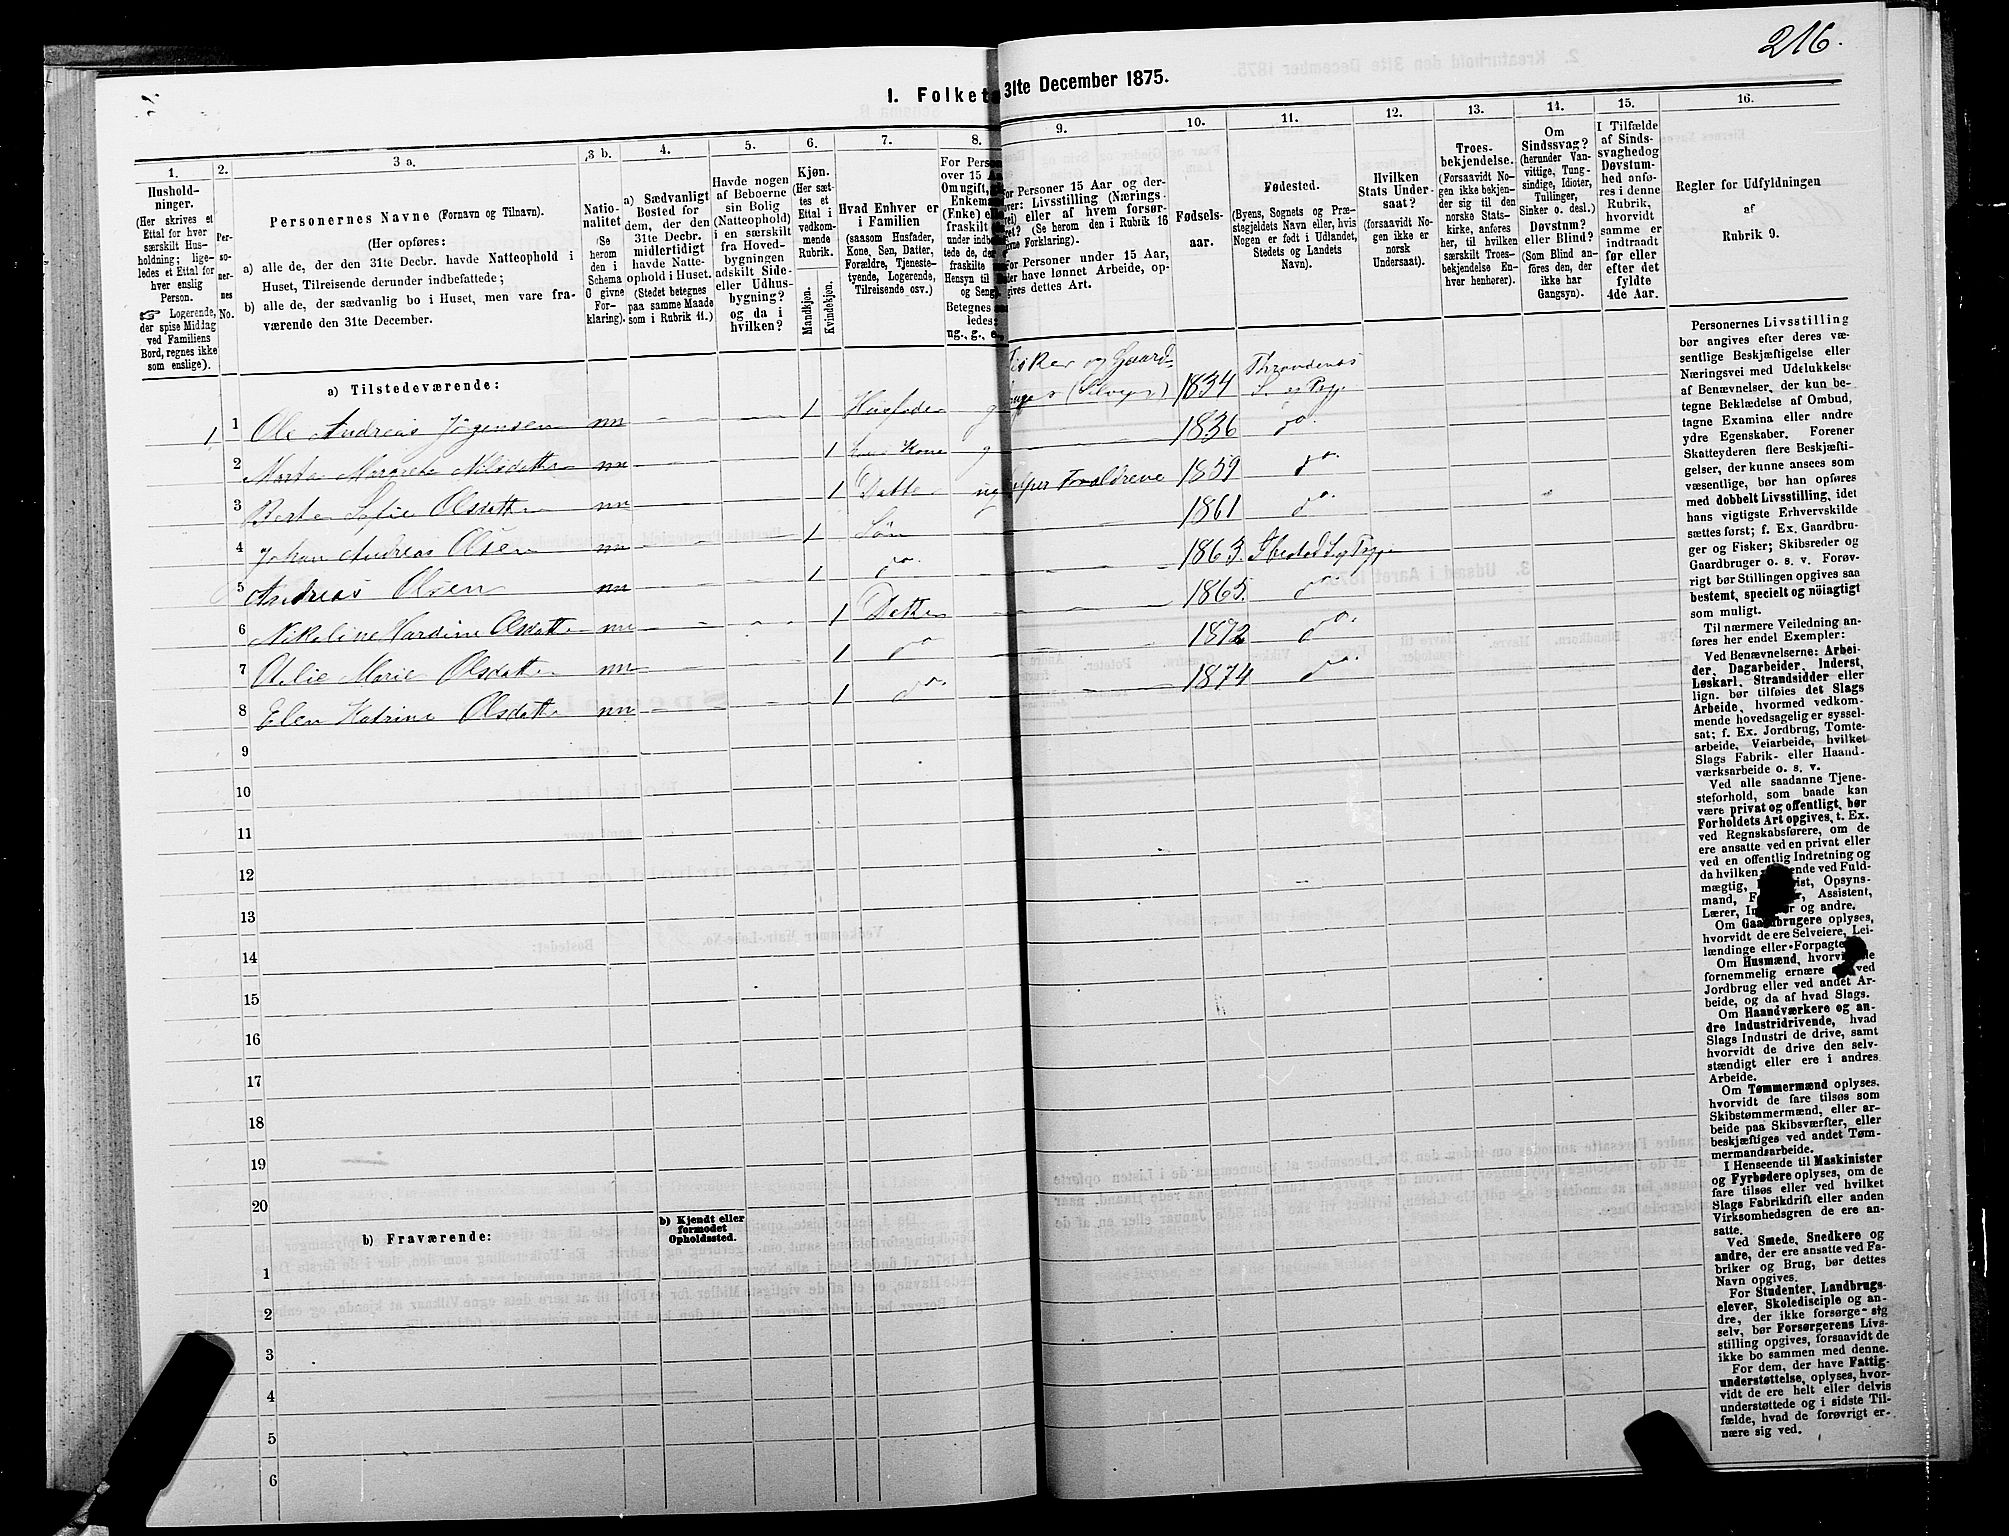 216.
I. Folket
31te December 1875.
1.
Hushold-
ninger.
(Her skrives et
Ettal for hver
særskilt Hus-
holdning; lige-
ledes et Ettal for
hver enslig
Person.
☞ Logerende,
der spise Middag
ved Familiens
Bord, regnes ikke
som enslige).
2.
Per-
so-
ner-
nes
No.
3 a.
Personernes Navne (Fornavn og Tilnavn).
(Her opføres:
a) alle de, der den 31te Decbr. havde Natteophold i
Huset, Tilreisende derunder indbefattede;
b) alle de, der sædvanlig bo i Huset, men vare fra-
værende den 31te December.
3 b.
Natio-
nalitet
(Se
herom
den i
Schema
C givne
For-
klaring).
4.
a) Sædvanligt
Bosted for
dem, der den
31te Decbr.
midlertidigt
havde Natte-
ophold i Huset.
(Stedet betegnes
paa samme Maade
som i Rubrik 11.)
5.
Havde nogen
af Beboerne
sin Bolig
(Natteophold)
i en særskilt
fra Hoved-
bygningen
adskilt Side-
eller Udhus-
bygning?
og da i
hvilken?
6.
Kjøn.
(Her sæt-
tes et
Ettal i
vedkom-
mende
Rubrik.
Mandkjøn.
Kvindekjøn.
7.
Hvad Enhver er
i Familien
(saasom Husfader,
Kone, Søn, Datter,
Forældre, Tjeneste-
tyende, Logerende,
Tilreisende osv.)
8.
For Person
over 15 Aa
Om ugift,
Enkem
(Enke) e
fraskilt
under indb
tede de,
fraskilte
Hensyn til
og Seng
Betegnes
ledes:
ug., g., e.,
9.
For Personer 15 Aar og der-
over: Livsstilling (Nærings-
vei) eller af hvem forsør-
get? (Se herom den i Rubrik 16
givne Forklaring).
For Personer under 15 Aar,
der have lønnet Arbeide, op-
gives dettes Art.
10.
Fødsels-
aar.
11.
Fødested.
(Byens, Sognets og Præ-
stegjeldets Navn eller, hvis
Nogen er født i Udlandet,
Stedets og Landets
Navn).
12.
Hvilken
Stats Under-
saat?
(forsaavidt No-
gen ikke er
norsk
Undersaat).
13.
Troes-
bekjendelse.
(Forsaavidt No-
gen ikke bekjen-
der sig til den
norske Stats-
kirke, anføres
her, til hvilken
særskilt Troes-
bekjendelse En-
hver henhører).
14.
Om
Sindssvag?
(herunder Van-
vittige, Tung-
sindige, Idioter,
Tullinger,
Sinker o. desl.)
Døvstum?
eller Blind?
(Som Blind an-
føres den, der
ikke har
Gangsyn).
15.
I Tilfælde
af Sinds-
svaghed og
Døvstum-
hed anfø-
res i denne
Rubrik,
hvorvidt
samme er
indtraadt
før eller
efter det
fyldte
4de Aar.
16.
Regler for Udfyldningen
af
Rubrik 9.
a) Tilstedeværende:
1 1 Ole Andreas Jörgensen nn - - - 1 Husfader g Fisker og Gaard- bruger (Selveier) 1834 Throndenes S. og Prgj.
2 Marta Margrete Nilsdatter nn 1 Hans Kone g 1836 do.
3 Berte Sofie Olsdatter nn 1 Datter ug hjelper Forældrene 1859 do.
4 Johan Andreas Olsen nn 1 Søn 1861 do.
5 Andreas Olsen nn 1 do. 1863. Ibestad S. og Prgj.
6 Nikoline Hardine Olsdatter nn 1 Datter 1865. do.
7 Otelie Marie Olsdatter nn 1 do 1872 do.
8 Elen Katrine Olsdatter nn 1 do. 1874 do.
9
10
11
12
13
14
15
16
17
18
19
20
b) Fraværende:
b) Kjendt eller
formodet
Opholdssted.
1
2
3
4
5
6
Personernes Livsstilling
bør angives efter deres væ-
sentlige Beskjæftigelse eller
Næringsvei med Udelukkelse
af Benævnelser, der kun be-
tegne Beklædelse af Ombud,
tagne Examina eller andre
ydre Egenskaber. Forener
Skatteyderen flere Beskjæfti-
gelser, der kunne ansees som
væsentlige, bør han opføres
med dobbelt Livsstilling, idet
hans vigtigste Erhvervskilde
sættes først; f. Ex. Gaardbru-
ger og Fisker; Skibsreder og
Gaardbruger o. s. v. Forøv-
rigt bør Stillingen opgives saa
bestemt, specielt og nöiagtigt
som muligt.
Til nærmere Veiledning an-
føres her endel Exempler:
Ved Benævnelserne: Arbei-
der, Dagarbeider, Inderst,
Løskarl, Strandsidder eller
lign. bør tilføies det Slags
Arbeide, hvormed vedkom-
mende hovedsagelig er syssel-
sat; f. Ex. Jordbrug, Tomte-
arbeide, Veiarbeide, hvilket
Slags Fabrik- eller Haand-
værksarbeide o. s. v.
Ved alle saadanne Tjene-
steforhold, som baade kan
være privat og offentligt, bør
Forholdets Art opgives, t. Ex.
ved Regnskabsførere, om de
ere ansatte ved en privat eller
ved en offentlig Indretning og
da hvilken; ende ved Fuld-
mægtig, ist, Opsyns-
mand, Assistent,
Lærer, og andre.
Om Gaardbrugere oplyses,
hvorvidt de ere Selveiere, Lei-
lændinge eller Forpagte
Om Husmænd, hvorvidt de
fornemmelig ernære ved
Jordbrug eller ved andet Ar-
beide, og da af hvad Slags.
Om Haandværkere og an-
dre Industridrivende, hvad
Slags Industri de drive, samt
hvorvidt de drive den selv-
stændigt eller ere i andres
Arbeide.
Om Tømmermænd oplyses,
hvorvidt de fare tilsøs som
Skibstømmermænd, eller ar-
beide paa Skibsværfter, eller
beskjæftiges ved andet Tøm-
mermandsarbeide.
I Henseende til Maskinister
og Fyrbødere oplyses, om de
fare tilsøs eller ved hvilket
Slags Fabrikdrift eller anden
Virksomhedsgren de ere an-
satte.
Ved Smede, Snedkere og
andre, der ere ansatte ved Fa-
briker og Brug, bør dettes
Navn opgives.
For Studenter, Landbrugs-
elever, Skoledisciple og an-
dre, der ikke forsørge sig
selv, bør Forsørgerens Livs-
stilling opgives, forsaavidt de
ikke bo sammen med denne.
For dem, der have Fattig-
understøttelse, oplyses, hvor-
vidt de ere helt eller delvis
understøttede og i sidste Til-
fælde, hvad de forøvrigt er-
nære sig ved.